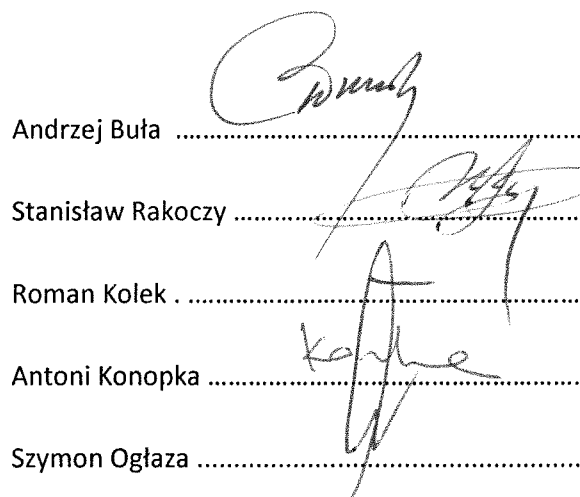 Andrzej Buła ..........................................................
Stanisław Rakoczy ..................................................
Roman Kolek . ........................................................
Antoni Konopka ......................................................
Szymon Ogłaza ........................................................